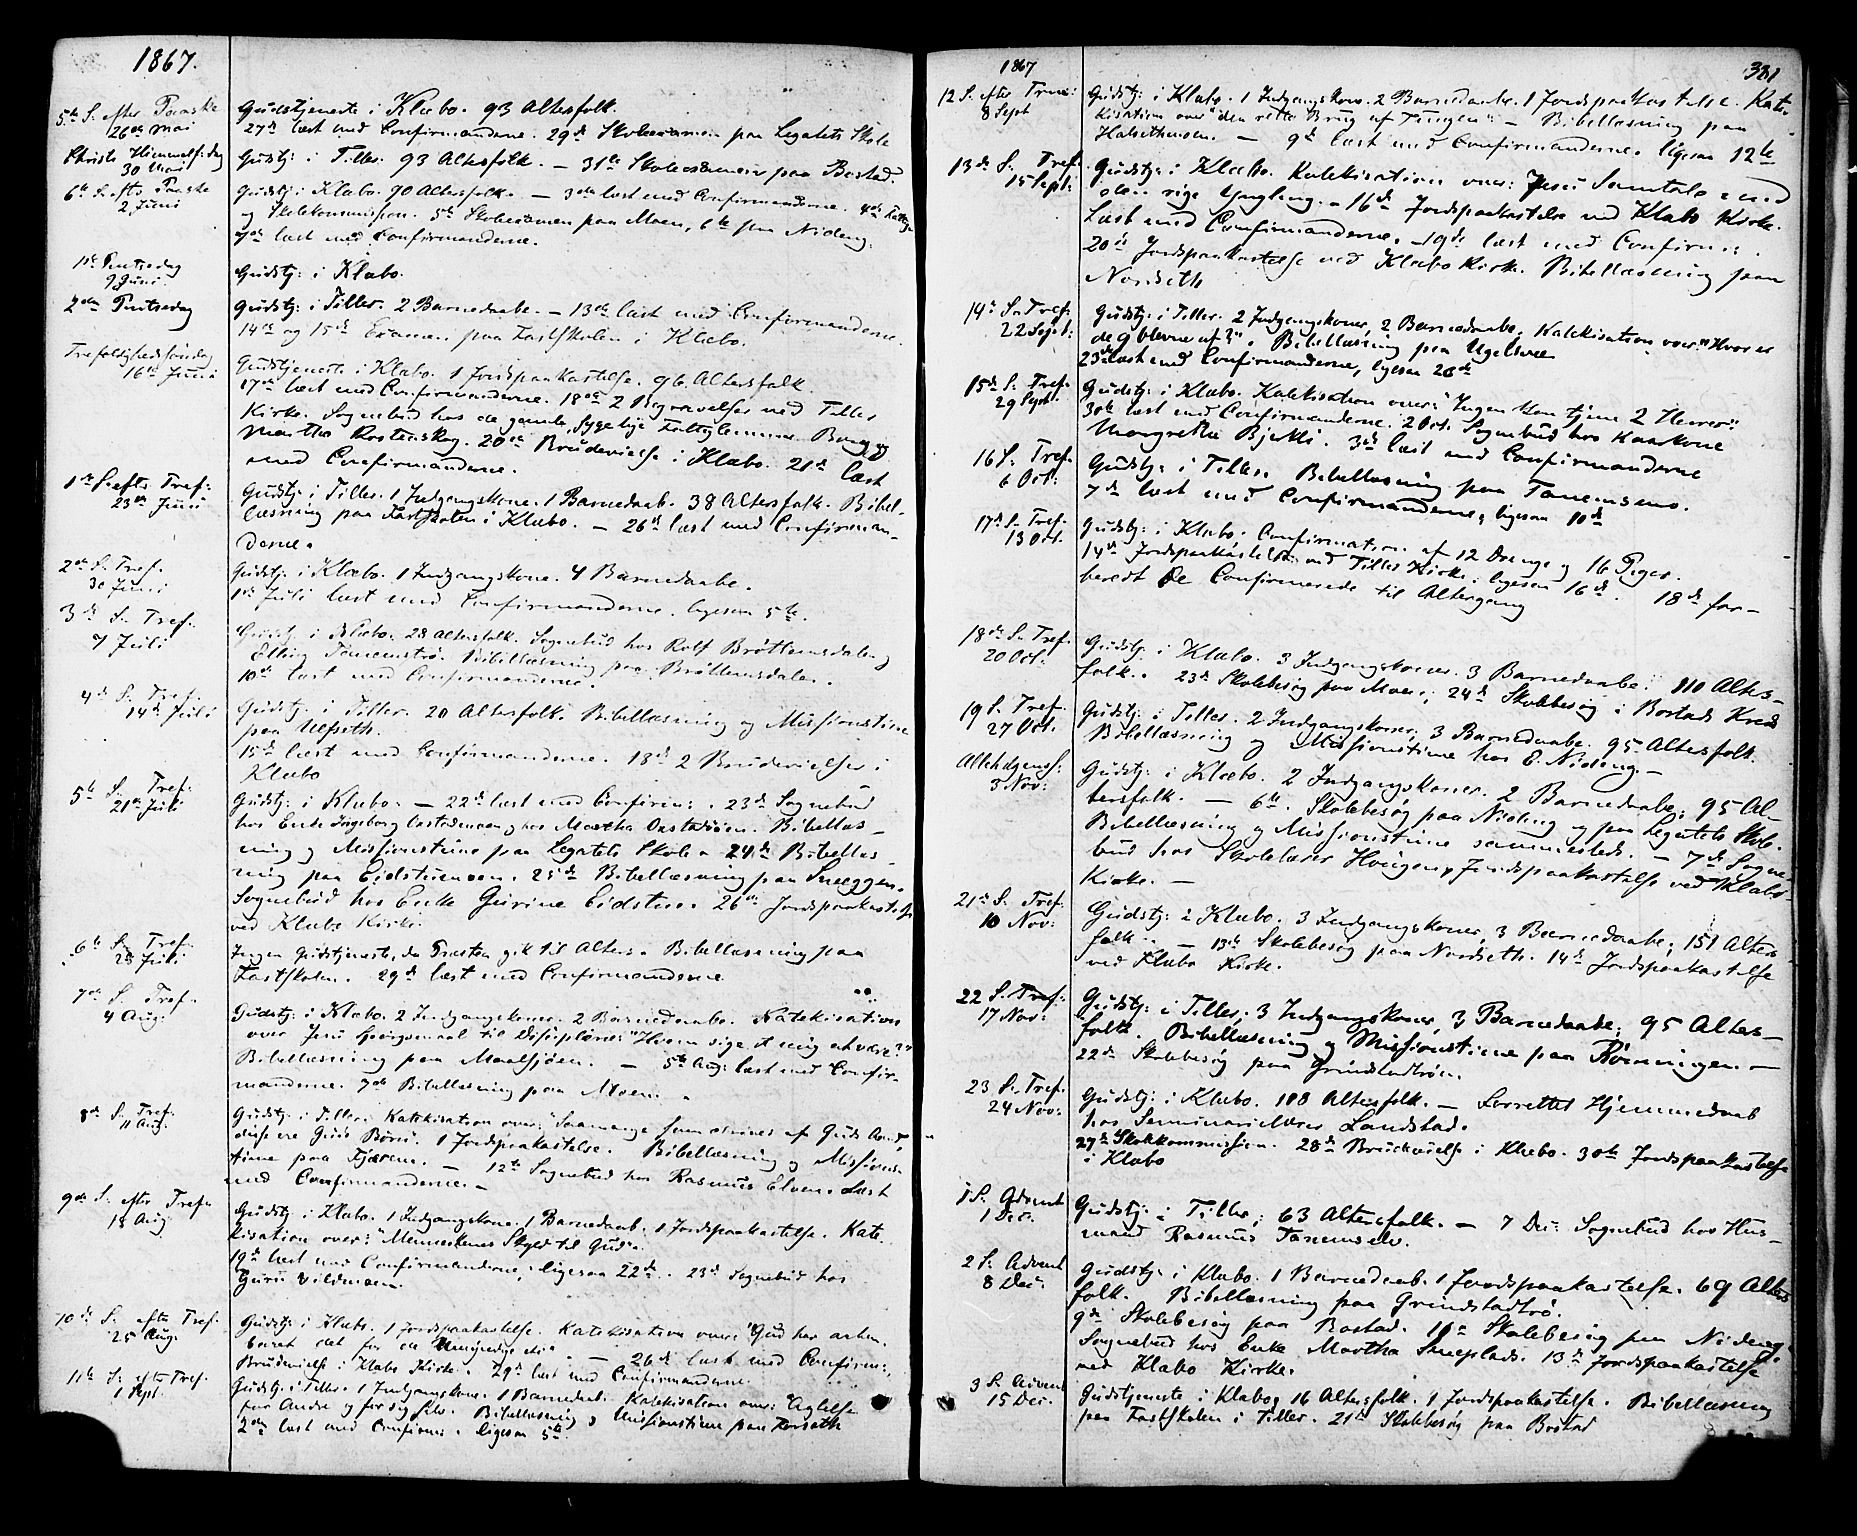 1867.
5te S. efter Paaske
26de Mai
Gudstjeneste i Klæbo. 93 Altersfolk.
27de læst med Confirmanderne. 29de Skoleexamen paa Legatets Skole
Christi Himmelf:dag
30 Mai
Gudstj: i Tiller. 93 Altersfolk. — 31te Skoleexamen paa Bostad.
6te S. efter Paaske
2 Juni
Gudstj: i Klæbo. 90 Altersfolk. — 3die læst med Confirmanderne. 4de Fattig-
og Skolekommission. 5te Skoleexamen paa Moen, 6te paa Nideng.
7de læst med Confirmanderne.
1ste Pintsedag
9 Juni
Gudstj: i Klæbo.
2den Pintsedag
Gudstj: i Tiller. 2 Barnedaabe. — 13de læst med Confirmanderne.
14de og 15de Examen paa Fastskolen i Klæbo.
Trefoldighedssøndag
16de Juni
Gudstjeneste i Klæbo. 1 Jordspaakastelse. 96 Altersfolk.
17de læst med Confirmanderne. 18de 2 Begravelser ved Tiller
Kirke. Sognebud hos de gamle, sygelige Fattiglemmer
Martha Rostenskog. 20de Brudevielse i Klæbo. 21de læst
med Confirmanderne.
1ste S. efter Tref:
23de Juni
Gudstj: i Tiller. 1 Indgangskone. 1 Barnedaab. 38 Altersfolk. Bibel-
læsning paa Fastskolen i Klæbo. — 26de læst med Confirman-
derne.
2den S. Tref.
30 Juni
Gudstj: i Klæbo. 1 Indgangskone. 4 Barnedaabe.
1ste Juli læst med Confirmanderne. ligesaa 5te.
3die S. Tref.
7 Juli
Gudstj. i Klæbo. 28 Altersfolk. Sognebud hos Rolf Brøttemsdalen og
Elling Tanemstrø. Bibellæsning paa Brøttemsdalen.
10de læst med Confirmanderne.
4de S. Tref.
14de Juli
Gudstj. i Tiller. 20 Altersfolk. Bibellæsning og Missionstime
paa Ulseth.
15de læst med Confirmanderne. 18de 2 Brudevielser i
Klæbo
5te S. Tref.
21de Juli
Gudstj: i Klæbo. — 22de læst med Confirm:. 23de Sognebud
hos Enke Ingeborg og hos Martha. Bibellæs-
ning og Missionstime paa Legatets Skole. 24de Bibellæs-
ning paa Eidstumoen. 25de Bibellæsning paa Sneeggen.
Sognebud hos Enke Gurine Eidstu. 26de Jordspaakastelse
ved Klæbo Kirke.
6te S. Tref.
28 Juli
Ingen Gudstjeneste, da Præsten gik til Alters. Bibellæsning paa
Fastskolen. 29de læst med Confirmanderne
7de S. Tref.
4 Aug.
Gudstj: i Klæbo. 2 Indgangskoner. 2 Barnedaabe. Katekisation
over Jesu Spørgsmaal til Disciplene: "Hvem sige I mig at være?"
Bibellæsning paa Maalsjøen. — 5te Aug: læst med Confir-
manderne. 7de Bibellæsning paa Moen.
8de S. Tref.
11 Aug.
Gudstj: i Tiller. Katekisation over: "Saamange som drives af Guds Aand,
disse ere Guds Børn". 1 Jordspaakastelse. Bibellæsning og Missions-
time paa Tjærene. — 12te Sognebud hos Rasmus Elven. Læst
med Confirmanderne. —
9de S. efter Tref.
18 Aug.
Gudstj: i Klæbo. 1 Indgangskone. 1 Barnedaab. 1 Jordspaakastelse. Kate-
kisation over: "Menneskenes Skyld til Gud".
19de læst med Confirmanderne, ligesaa 22de. 23de Sognebud hos
Guru Vildmann.
10de S. efter Tref.
25 Aug.
Gudstj: i Klæbo. 1 Jordspaakastelse. Katekisation over: "Gud har aaben-
baret det for de Umyndige". — 26de læst med Confirm:,
Brudevielse i Klæbo Kirke. 29de læst med Confirmanderne.
11te S. efter Tref.
1 Sept.
Gudstj: i Tiller. 1 Indgangskone. 1 Barnedaab. Katekisation over: "Agtelse
for Andre og for sig selv. Bibellæsning og Missionstime paa Torseth
2den læst med Confirm:. ligesaa 5te.
1867
381
12 S. efter Trin:
8 Sept
Gudstj: i Klæbo. 1 Indgangskone. 2 Barnedaabe. 1 Jordspaakastelse. Kate-
kisation over "den rette Brug af Tungen". — Bibellæsning paa
Halsethmoen. — 9de læst med Confirmanderne. ligesaa 12te
13de S. Tref.
15 Sept:
Gudstj: i Klæbo. Katekisation over: Jesu Samtale med
den rige Yngling. — 16de Jordspaakastelse ved Klæbo Kirke.
Læst med Confirmanderne. — 19de læst med Confirm:.
20de Jordspaakastelse ved Klæbo Kirke. Bibellæsning paa
Nordseth
14de S. Tref.
22 Sept:
Gudstj: i Tiller. 2 Indgangskoner, 2 Barnedaabe. Katekisation over: "Hvor ere
de 9 blevne af?". Bibellæsning paa Ugelsmo
23de læst med Confirmanderne, ligesaa 26de
15de S. Tref.
29 Sept.
Gudstj: i Klæbo. Katekisation over: "Ingen kan tjene 2 Herrer".
30te læst med Confirmanderne. 2 Oct. Sognebud hos Kaarkone
Margrethe Bjekli. 3die læst med Confirmanderne
16 S. Tref.
6 Oct:
Gudstj: i Tiller. Bibellæsning paa Tanemsmo.
7de læst med Confirmanderne, ligesaa 10de
17de S. Tref.
13 Oct.
Gudstj: i Klæbo. Confirmation af 12 Drenge og 16 Piger.
14de Jordspaakastelse ved Tiller Kirke. ligesaa 16de. 18de for-
beredt de Confirmerede til Altergang
18de S. Tref.
20 Oct.
Gudstj. i Klæbo. 3 Indgangskoner. 3 Barnedaabe. 110 Alters-
folk. 23de Skolebesøg paa Moen, 24de Skolebesøg i Bostads Kreds
19 S. Tref.
27 Oct.
Gudstj: i Tiller. 2 Indgangskoner, 3 Barnedaabe. 95 Altersfolk.
Bibellæsning og Missionstime hos E. Nideng. —
Allehelgenss:
3 Nov:
Gudstj: i Klæbo. 2 Indgangskoner. 2 Barnedaabe; 95 Al-
tersfolk. — 6te. Skolebesøg paa Nideng og paa Legatets Skole.
Bibellæsning og Missionstime sammesteds. — 7de Sogne-
bud hos Skolelærer Haugen og Jordspaakastelse ved Klæbo
Kirke. —
21de S. Tref.
10 Nov:
Gudstj: i Klæbo. 3 Indgangskoner, 3 Barnedaabe, 151 Alters-
folk. — 13de Skolebesøg paa Nordseth. 14de Jordspaakastelse
ved Klæbo Kirke.
22 S. Tref:
17 Nov:
Gudstj: i Tiller. 3 Indgangskoner, 3 Barnedaabe; 95 Alters-
folk. Bibellæsning og Missionstime paa Rønningen. —
22de Skolebesøg paa Grindstadtrøen.
23 S. Tref.
24 Nov:
Gudstj: i Klæbo. 108 Altersfolk. — Forrettet Hjemmedaab
hos Seminarielærer Landstad.
27de Skolekommission. 28de Brudevielse i Klæbo. 30te Jordspaakastelse
i Klæbo
1 S. Advent
1 Dec.
Gudstj: i Tiller; 63 Altersfolk. — 7 Dec: Sognebud hos Hus-
mand Rasmus Tanemselv.
2 S. Advent
8 Dec.
Gudstj: i Klæbo. 1 Barnedaab. 1 Jordspaakastelse. 69 Alters-
folk. Bibellæsning paa Grindstadtrø.
9de Skolebesøg paa Bostad. 10de Skolebesøg paa Nideng.
Sognebud hos Enke Martha Sneeplads. 13de Jordspaakastelse
ved Klæbo Kirke.
3 S. Advent
15 Dec.
Gudstjeneste i Klæbo, 16 Altersfolk. 1 Jordspaakastelse. Bibellæsning
paa Fastskolen i Tiller. 21de Skolebesøg paa Bostad